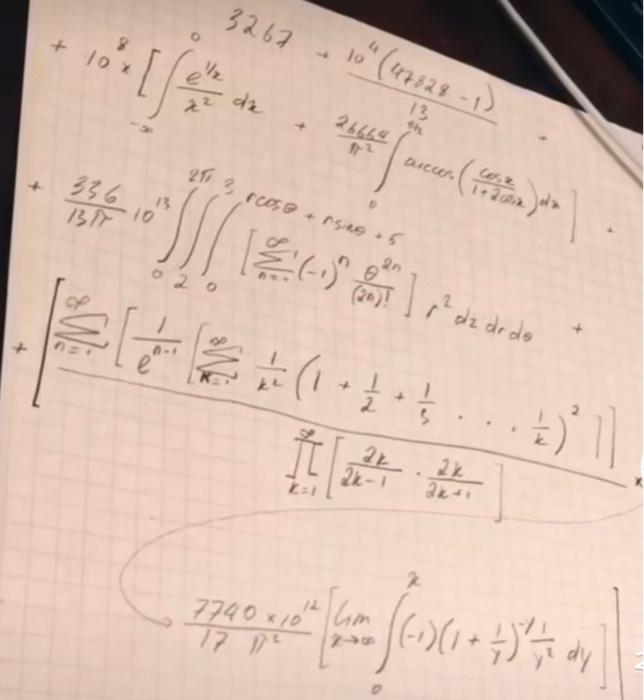 3267 + 10^4 (47828 - 1) / 13 +
+ 10^8 × [ ∫_{-∞}^{0} e^{1/x} / x^2 dx + 26664 / π^2 ∫_{0}^{π/2} arccos ( cos x / (1 + 2cos x) ) dx ] +
+ 336 / 13π 10^13 ∫_{0}^{2π} ∫_{2}^{3} ∫_{0}^{r cos θ + r sin θ + 5} [ ∑_{n=1}^{∞} (-1)^n θ^{2n} / (2n)! ] r^2 dz dr dθ +
+ [ ∑_{n=1}^{∞} [ 1 / e^{n-1} [ ∑_{k=1}^{∞} 1 / k^2 ( 1 + 1/2 + 1/3 . . . 1/k )^2 ] ] / ∏_{k=1}^{∞} [ 2k / (2k-1) · 2k / (2k+1) ] ×
7740 × 10^12 / 17 π^2 [ lim_{x→∞} ∫_{0}^{x} (-1) (1 + 1/y)^{-1} 1/y^2 dy ] ]